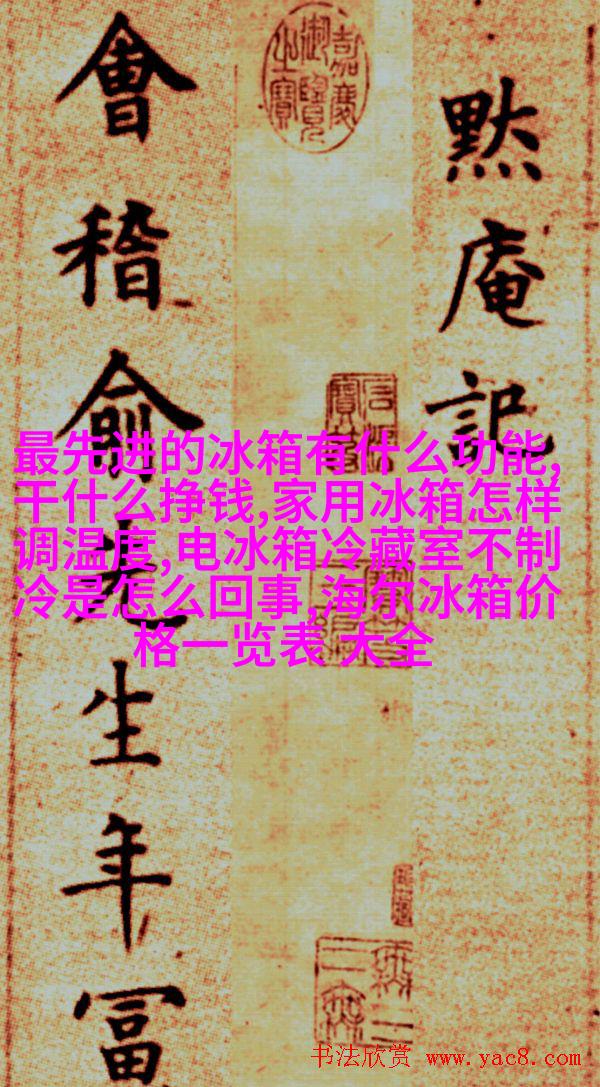 黙庵記
嘉慶
御覽
之寶
石渠
寶笈
會稽俞先生年冨
最先进的冰箱有什么功能,
干什么挣钱,家用冰箱怎样
调温度,电冰箱冷藏室不制
冷是怎么回事,海尔冰箱价
格一览表 大全
书法欣赏 www.yac8.com